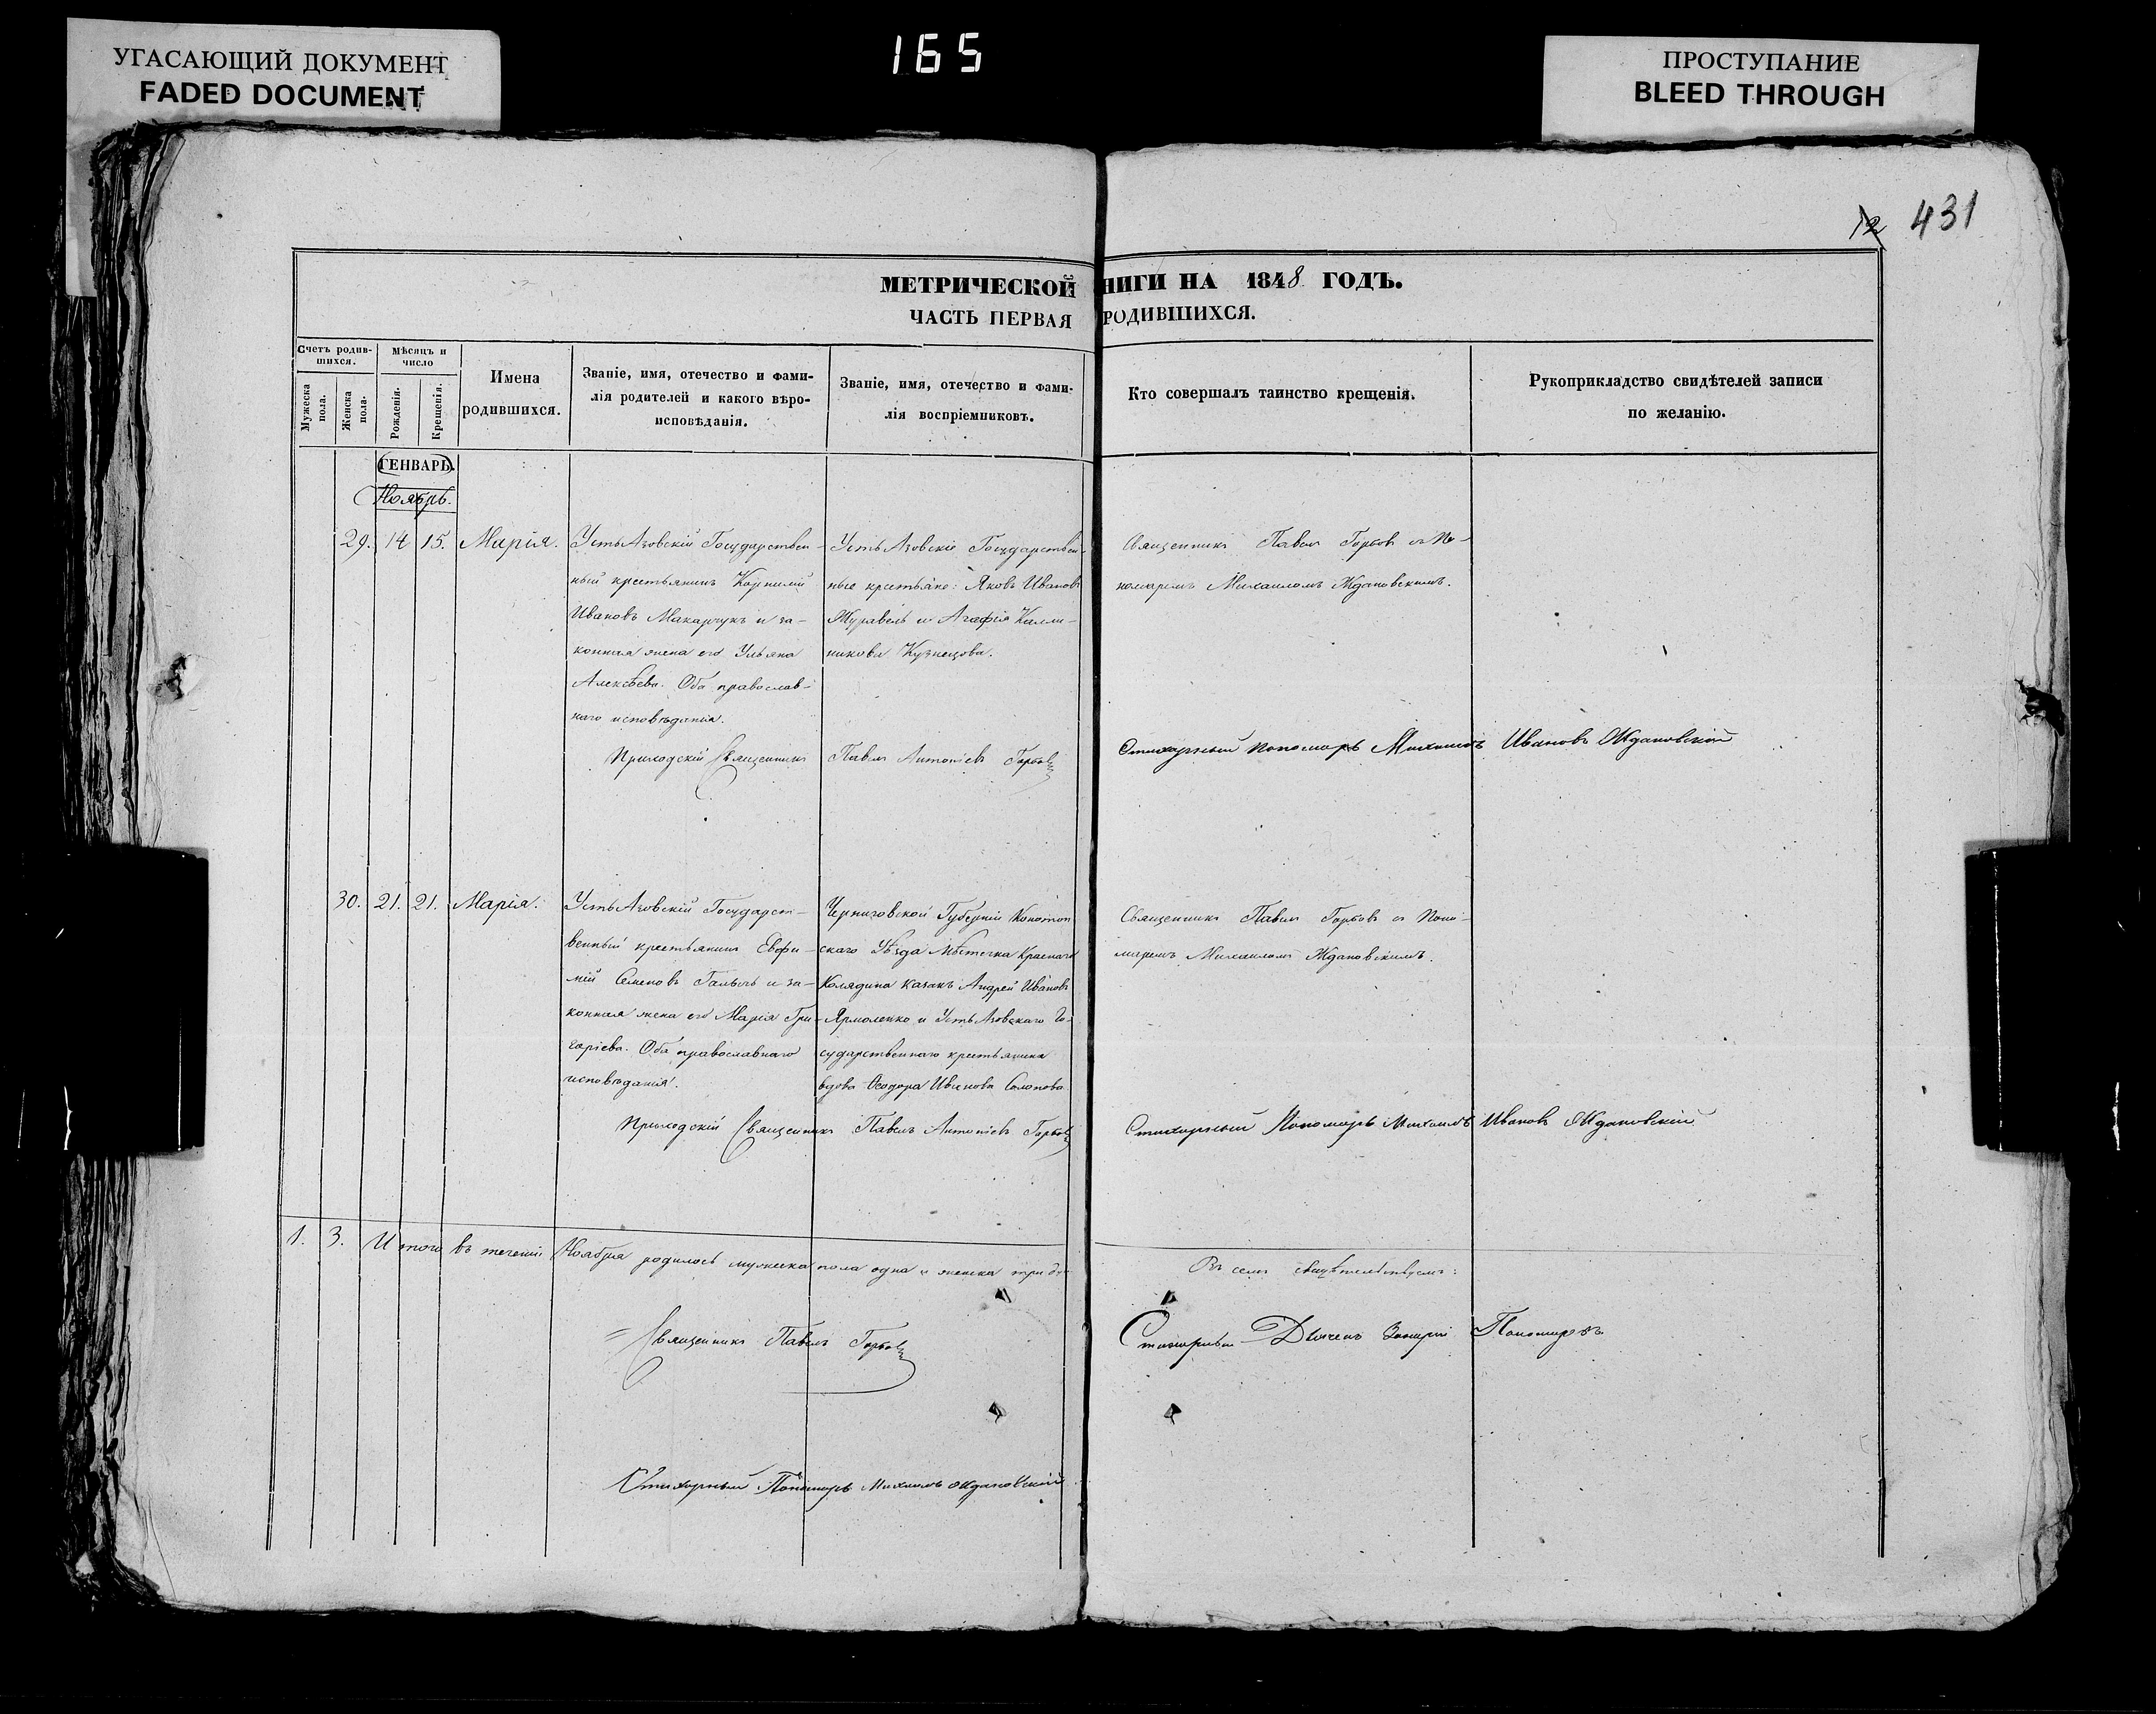 УГАСАЮЩИЙ ДОКУМЕНТ
FADED DOCUMENT
165
ПРОСТУПАНИЕ
BLEED THROUGH
12 431
МЕТРИЧЕСКОЙ НИГИ НА 1848 ГОДЪ.
ЧАСТЬ ПЕРВАЯ РОДИВШИХСЯ.
Счетъ родив-
шихся.
Мужеска
пола.
Женска
пола.
Мѣсяцъ и
число
Рожденія.
Крещенія.
Имена
родившихся.
Званіе, имя, отечество и фами-
лія родителей и какого вѣро-
исповѣданія.
Званіе, имя, отечество и фами-
лія воспріемниковъ.
Кто совершалъ таинство крещенія.
Рукоприкладство свидѣтелей записи
по желанію.
ГЕНВАРЬ.
Ноябрь.
29. 14 15. Марія.
Усть Азовскій Государствен-
ный крестьянинъ
Ивановъ Макарчукъ и за-
конная жена его Ульяна
Алексѣева. Оба православ-
наго исповѣданія.
Усть Азовскіе Государствен-
ные крестьяне: Яковъ Ивановъ
Журавель и Агафія Калли-
никова Кузнецова.
Священникъ Павелъ Горбовъ съ По-
номаремъ Михаиломъ Ждановскимъ.
Приходскій Священникъ Павелъ Антоніевъ Горбовъ
Стихарный пономарь Михаилъ Ивановъ Ждановскій
30. 21. 21. Марія.
Усть Азовскій Государст-
венный крестьянинъ Евфи-
мій Семеновъ и за-
конная жена его Марія Гри-
горіева. Оба православнаго
исповѣданія.
Черниговской Губерніи Конотоп
скаго Уѣзда Мѣстечка Краснаго
Колядина казакъ Андрей Ивановъ
Ярмоленко и Усть Азовскаго Го-
сударственнаго крестьянина
вдова Ѳеодора Иванова
Священникъ Павелъ Горбовъ съ Поно-
маремъ Михаиломъ Ждановскимъ.
Приходскій Священникъ Павелъ Антоніевъ Горбовъ
Стихарный Пономарь Михаилъ Ивановъ Ждановскій
1. 3. Итого въ теченіи Ноября родилось мужеска пола одна и женска три
Въ семъ свидѣтельствуемъ:
Священникъ Павелъ Горбовъ
Стихарный Дьячекъ Пономаревъ
Стихарный Пономарь Михаилъ Ждановскій